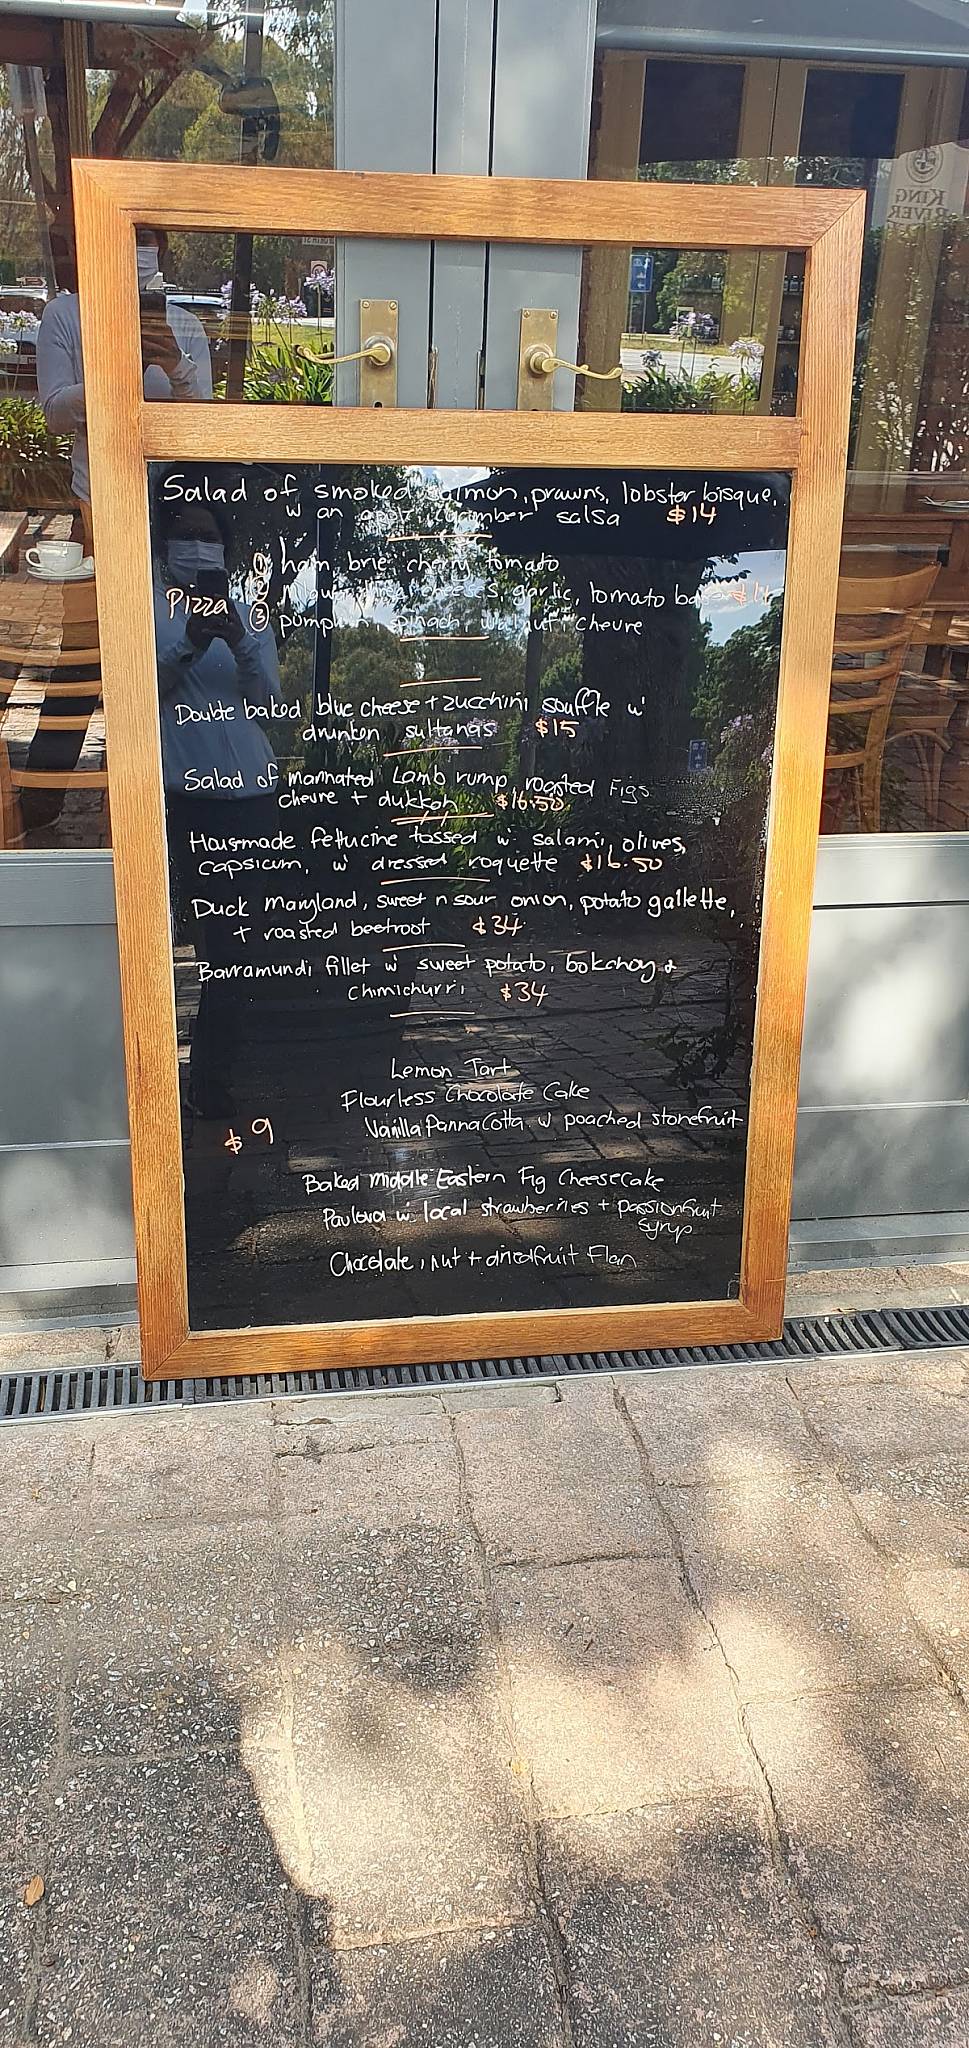 KING
RIVER
Salad of smoked salmon, prawns, lobster bisque,
w an cucumber salsa $14
① ham, brie, cherry tomato
Pizza ② cheeses, garlic, tomato
③ pumpkin, spinach, walnut, chevre
Double baked blue cheese + zucchini souffle w'
drunken sultanas $15
Salad of marinated Lamb rump, roasted Figs
chevre + dukkah $16.50
Housemade fettucine tossed w' salami, olives,
capsicum, w' dressed roquette $16.50
Duck maryland, sweet n sour onion, potato gallette,
+ roasted beetroot $34
Barramundi fillet w' sweet potato, bokchoy &
chimichurri $34
Lemon Tart
Flourless Chocolate Cake
$9 Vanilla Panna Cotta w poached stonefruit
Baked Middle Eastern Fig Cheesecake
Pavlova w. local strawberries + passionfruit
Syrup
Chocolate, nut + driedfruit Flan